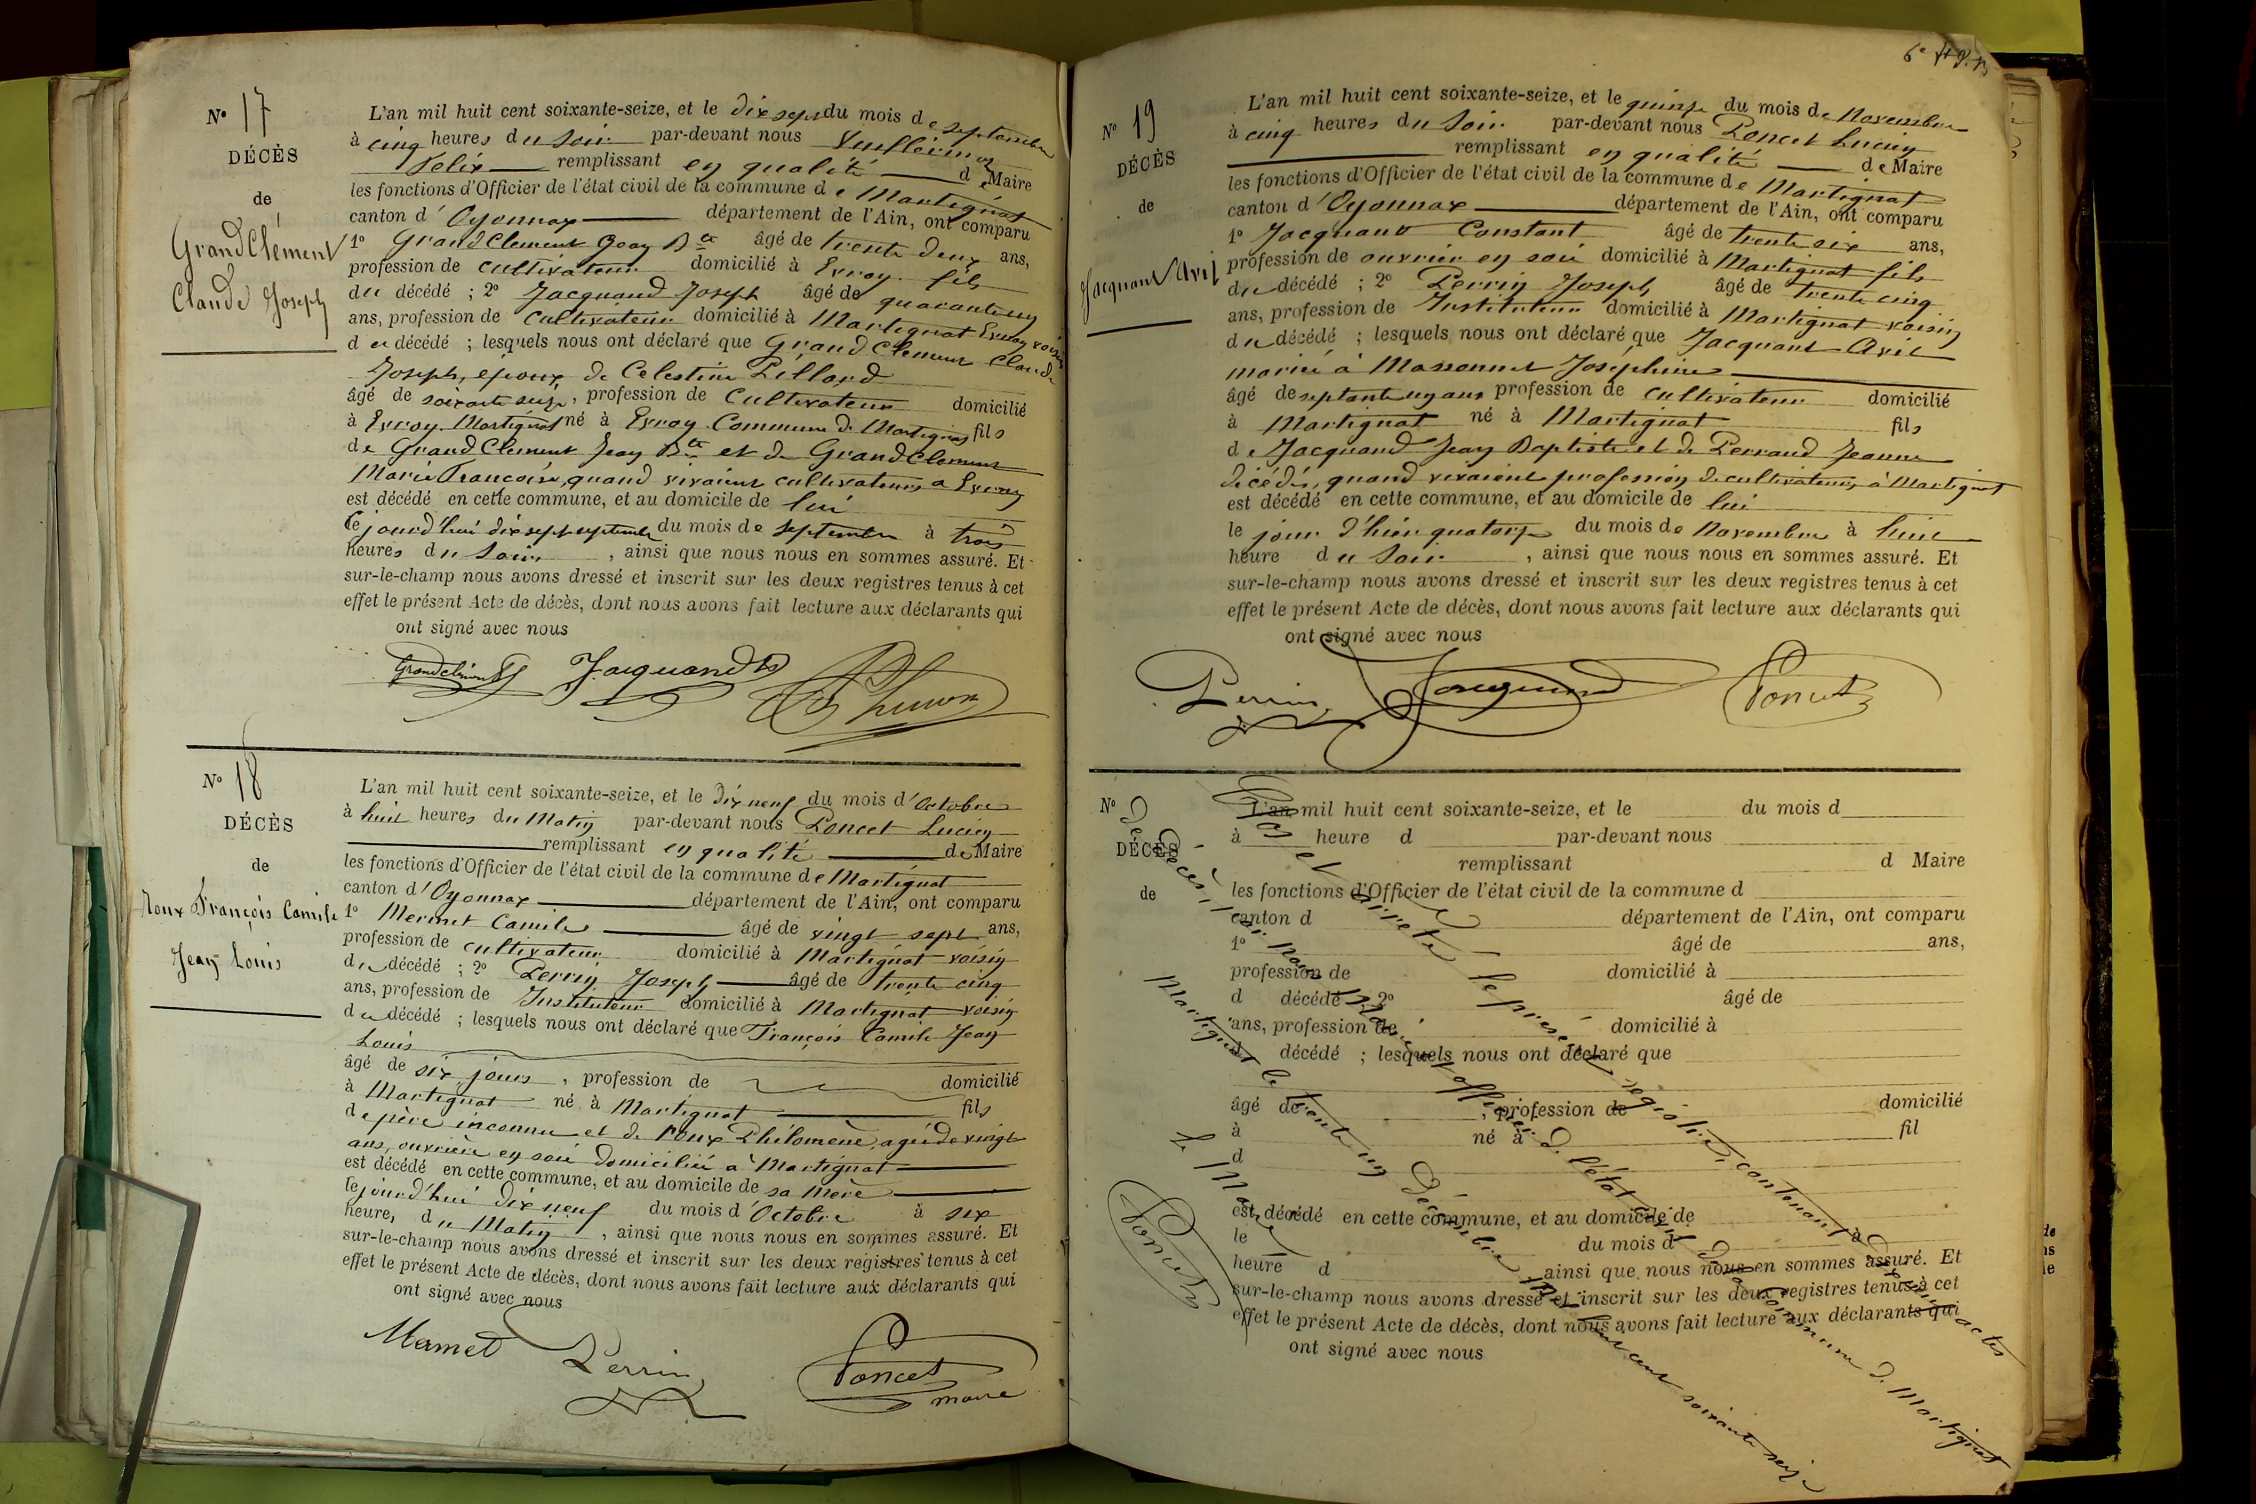 N° 17
DÉCÈS
de
GrandClément
Claude Joseph
L'an mil huit cent soixante-seize, et le dix sept du mois de septembre
à cinq heures du Soir par-devant nous Vuillermoz
Félix remplissant en qualité de Maire
les fonctions d'Officier de l'état civil de la commune de Martignat
canton d'Oyonnax département de l'Ain, ont comparu
1° GrandClement Jean Bte âgé de trente deux ans,
profession de cultivateur domicilié à Evroy fils
du décédé ; 2° Jacquand Joseph âgé de quarante un
ans, profession de Cultivateur domicilié à Martignat Evroy voisin
du décédé ; lesquels nous ont déclaré que GrandClement Claude
Joseph, époux de Célestine Pillard
âgé de soixante seize, profession de Cultivateur domicilié
à Evroy Martignat né à Evroy Commune de Martignat fils
de GrandClement Jean Bte et de GrandClement
Marie Françoise, quand vivaient cultivateurs à Evroy
est décédé en cette commune, et au domicile de lui
le jourd'hui dix sept septembre du mois de septembre à trois
heures du Soir, ainsi que nous nous en sommes assuré. Et
sur-le-champ nous avons dressé et inscrit sur les deux registres tenus à cet
effet le présent Acte de décès, dont nous avons fait lecture aux déclarants qui
ont signé avec nous
Grandclément Jacquand
N° 18
DÉCÈS
de
Roux François Camile
Jean Louis
L'an mil huit cent soixante-seize, et le dix neuf du mois d'Octobre
à huit heures du Matin par-devant nous Poncet Lucien
remplissant en qualité de Maire
les fonctions d'Officier de l'état civil de la commune de Martignat
canton d'Oyonnax département de l'Ain, ont comparu
1° Mermet Camile âgé de vingt sept ans,
profession de cultivateur domicilié à Martignat voisin
du décédé ; 2° Perrin Joseph âgé de trente cinq
ans, profession de Instituteur domicilié à Martignat voisin
du décédé ; lesquels nous ont déclaré que François Camile Jean
Louis
âgé de six jours, profession de domicilié
à Martignat né à Martignat fils
de père inconnu et de Roux Philomène, agée de vingt
ans, ouvrière en soie domiciliée à Martignat
est décédé en cette commune, et au domicile de sa Mère
le jourd'hui dix neuf du mois d'Octobre à six
heures, du Matin, ainsi que nous nous en sommes assuré. Et
sur-le-champ nous avons dressé et inscrit sur les deux registres tenus à cet
effet le présent Acte de décès, dont nous avons fait lecture aux déclarants qui
ont signé avec nous
Mermet Perrin Poncet
maire
N° 19
DÉCÈS
de
Jacquand Avit
L'an mil huit cent soixante-seize, et le quinze du mois de Novembre
à cinq heures du Soir par-devant nous Poncet Lucien
remplissant en qualité de Maire
les fonctions d'Officier de l'état civil de la commune de Martignat
canton d'Oyonnax département de l'Ain, ont comparu
1° Jacquand Constant âgé de trente six ans,
profession de ouvrier en soie domicilié à Martignat fils
du décédé ; 2° Perrin Joseph âgé de trente cinq
ans, profession de Instituteur domicilié à Martignat voisin
du décédé ; lesquels nous ont déclaré que Jacquand Avit
marié à Massonnet Joséphine
âgé de septante un ans profession de cultivateur domicilié
à Martignat né à Martignat fils
de Jacquand Jean Baptiste et de Perraud Jeanne
décédés, quand vivaient profession de cultivateurs à Martignat
est décédé en cette commune, et au domicile de lui
le jour d'hier quatorze du mois de Novembre à huit
heure du Soir, ainsi que nous nous en sommes assuré. Et
sur-le-champ nous avons dressé et inscrit sur les deux registres tenus à cet
effet le présent Acte de décès, dont nous avons fait lecture aux déclarants qui
ont signé avec nous
Perrin Jacquand Poncet
N°
DÉCÈS
de
L'an mil huit cent soixante-seize, et le du mois d
à heure d par-devant nous
remplissant d Maire
les fonctions d'Officier de l'état civil de la commune d
canton d département de l'Ain, ont comparu
1° âgé de ans,
profession de domicilié à
d décédé 2° âgé de
ans, profession de domicilié à
d décédé ; lesquels nous ont déclaré que
âgé de, profession de domicilié
à né à fil
d
est décédé en cette commune, et au domicile de
le du mois d
heure d ainsi que nous nous en sommes assuré. Et
sur-le-champ nous avons dressé et inscrit sur les deux registres tenus à cet
effet le présent Acte de décès, dont nous avons fait lecture aux déclarants qui
ont signé avec nous
Clos et arrêté le présent registre, contenant dix neuf actes
de Décès, par nous Maire et officier de l'état civil de la Commune de Martignat
Martignat le trente un Décembre mil huit cent soixante seize
le Maire
Poncet